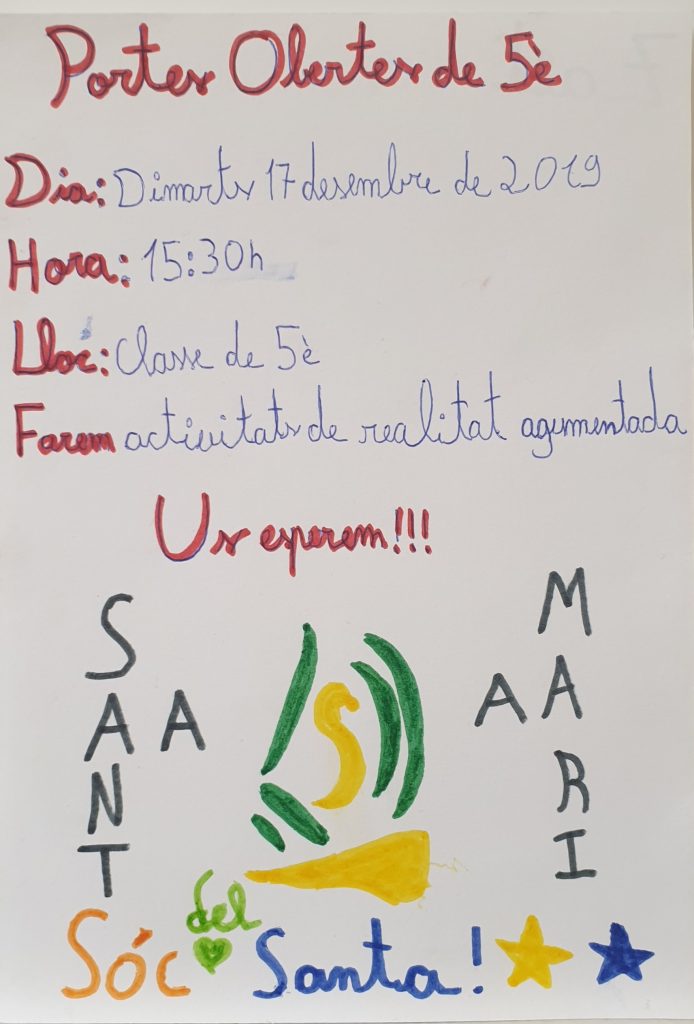 Portes Obertes de 5è
Dia: Dimarts 17 desembre de 2019
Hora: 15:30h
Lloc: Classe de 5è
Farem activitats de realitat agumentada
Us esperem!!!
SANT
A
S
A
MARI
Sóc del Santa!